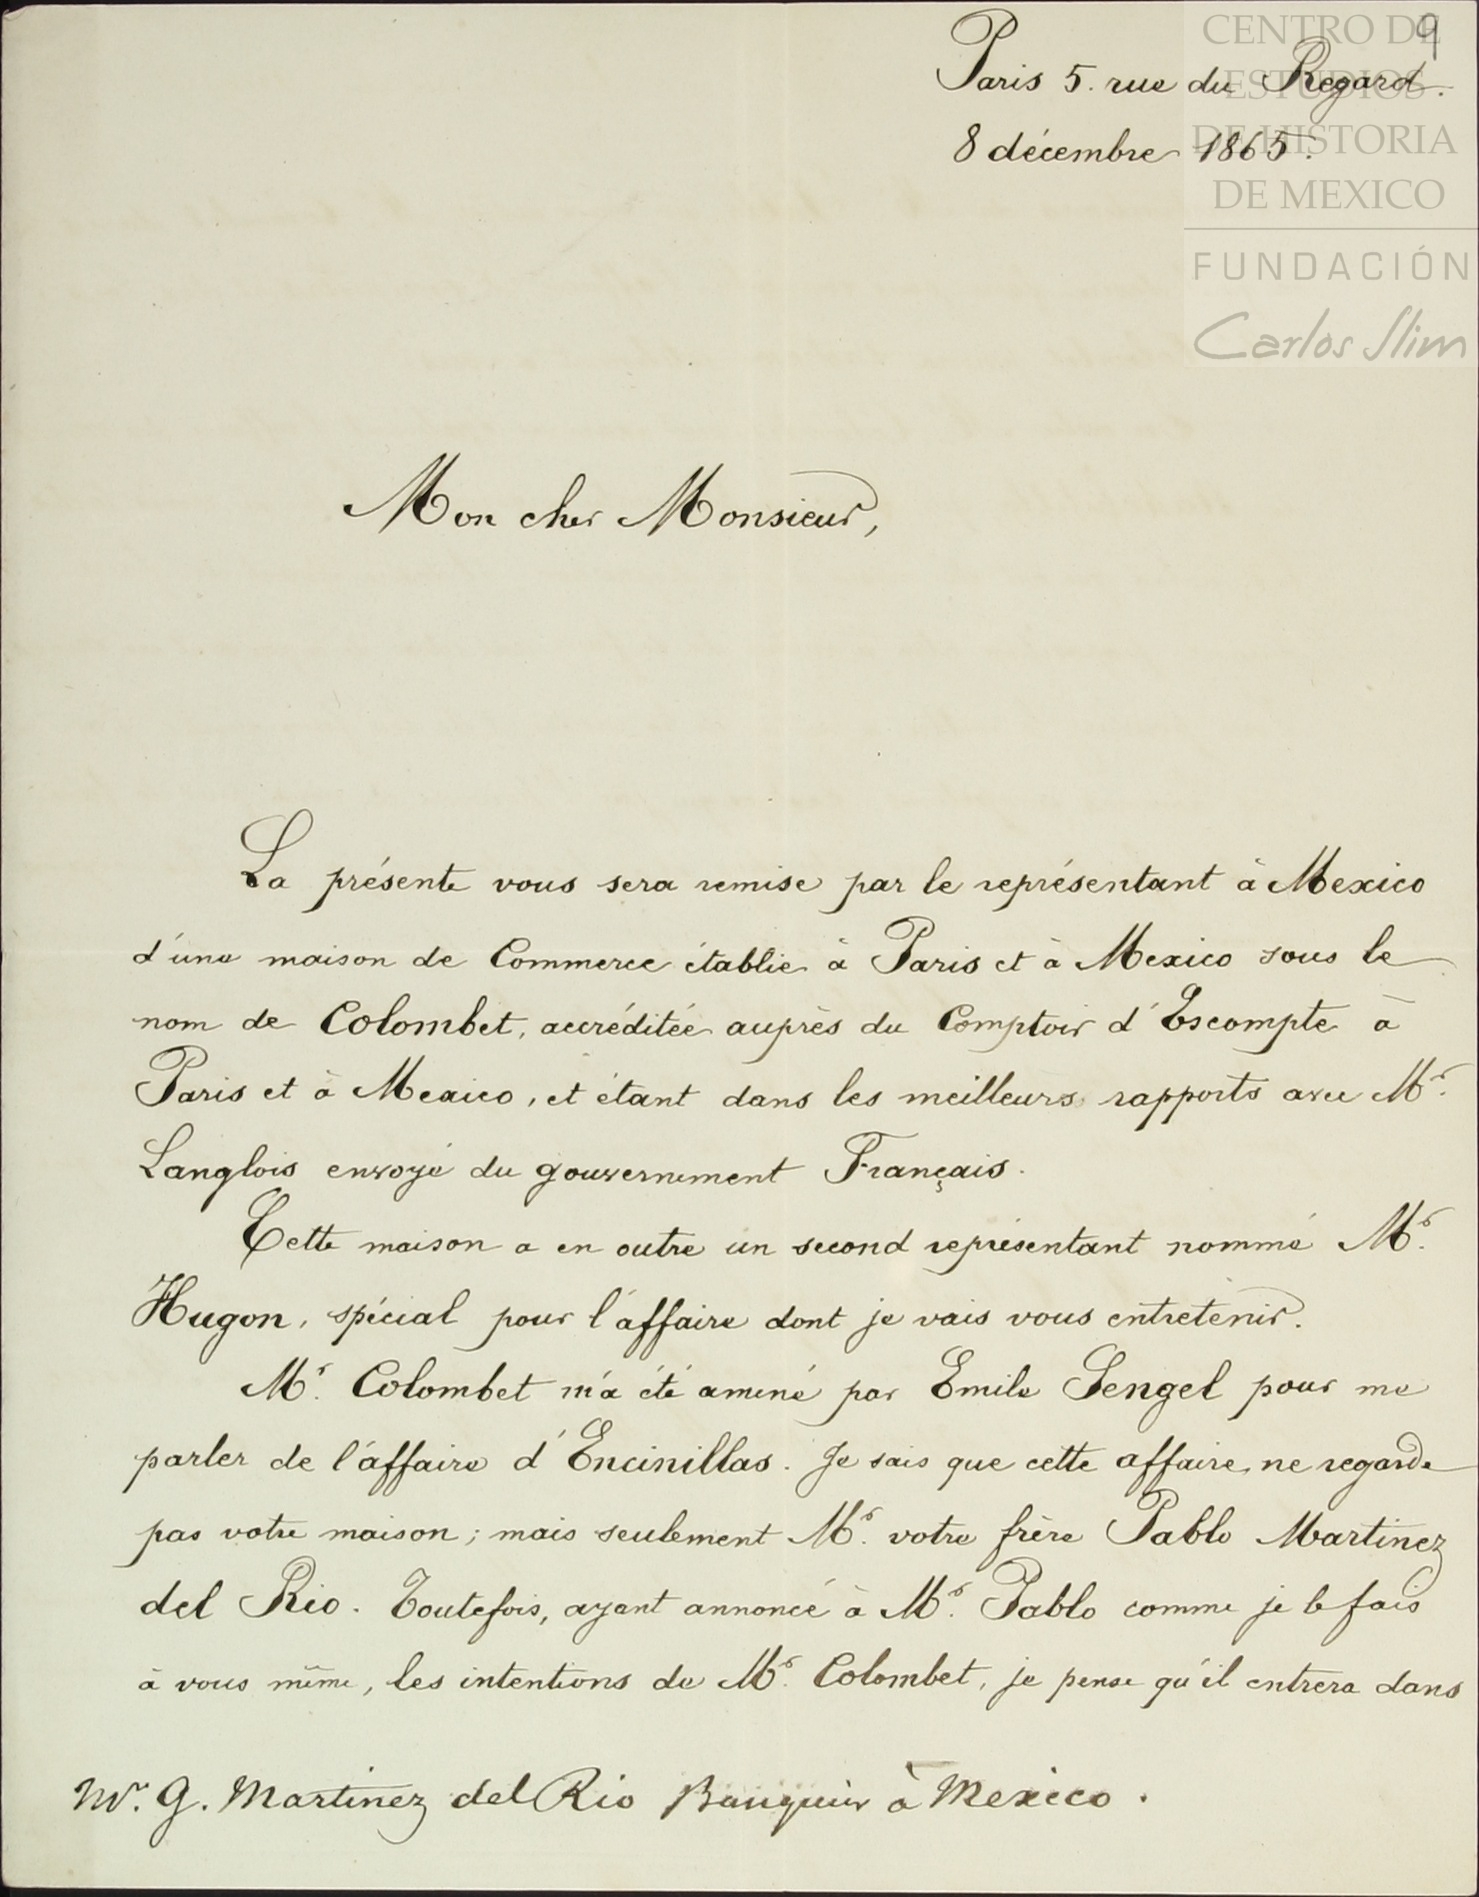 9
CENTRO DE
ESTUDIOS
DE HISTORIA
DE MEXICO
FUNDACIÓN
Carlos Slim
Paris 5. rue du Regard.
8 décembre 1865.
Mon cher Monsieur,
La présente vous sera remise par le représentant à Mexico
d'une maison de Commerce établie à Paris et à Mexico sous le
nom de Colombet, accréditée auprès du Comptoir d'Escompte à
Paris et à Mexico, et étant dans les meilleurs rapports avec Mr.
Langlois envoyé du gouvernement Français.
Cette maison a en outre un second représentant nommé Mr.
Hugon, spécial pour l'affaire dont je vais vous entretenir.
Mr. Colombet m'a été amené par Emile pour me
parler de l'affaire d'Encinillas. Je sais que cette affaire ne regarde
pas votre maison; mais seulement Mr. votre frère Pablo Martinez
del Rio. Toutefois, ayant annoncé à Mr. Pablo comme je le fais
à vous même, les intentions de Mr. Colombet, je pense qu'il entrera dans
Mr. G. Martinez del Rio Banquier à Mexico.